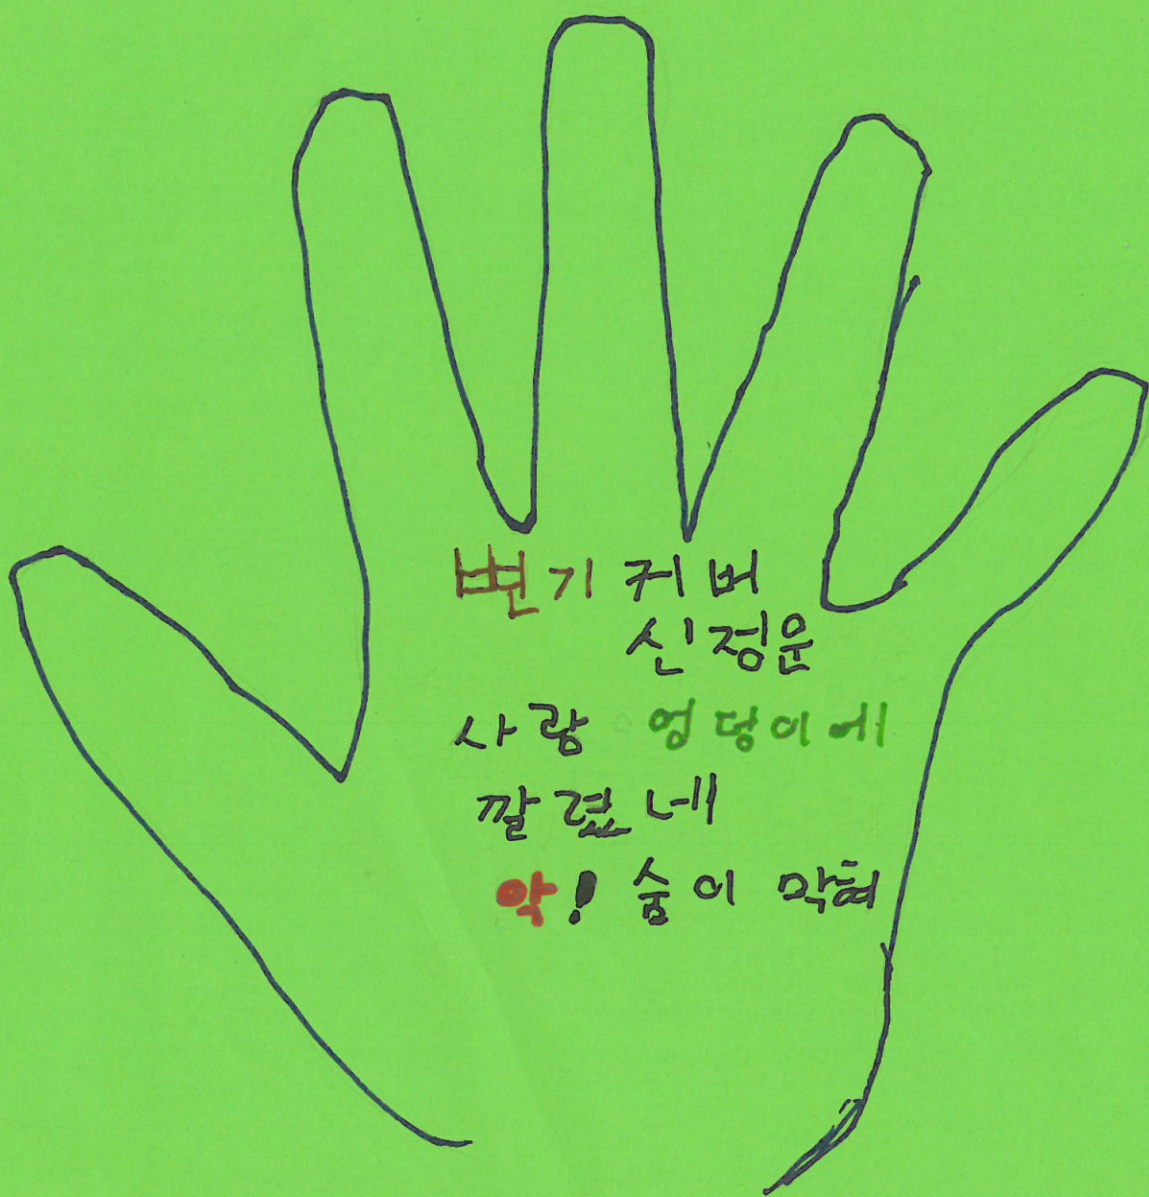 변기 커버
신정운
사랑 엉덩이에
깔렸네
악! 숨이 막혀